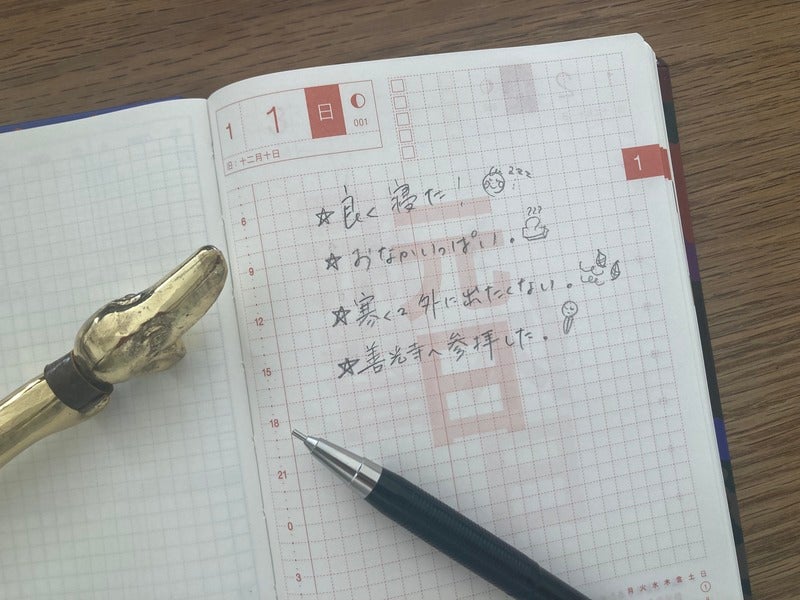 1 1 日
001
旧:十二月十日
1
元日
☆良く寝た! zzz
☆おなかいっぱい。
☆寒くて外に出たくない。
☆善光寺へ参拝した。
6
9
12
15
18
21
0
3
月火水木金土日
1